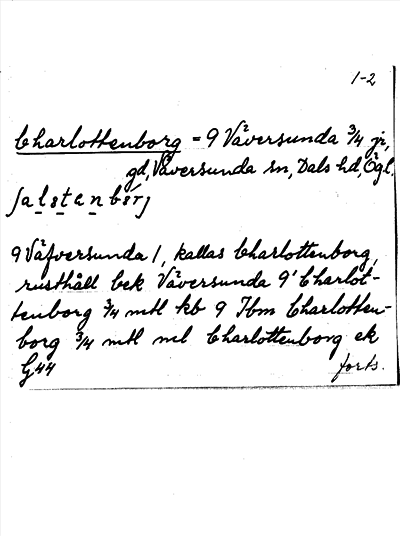 1-2
Charlottenborg = 9 Väversunda 3/4 jr,
gd, Väversunda sn, Dals hd, Ögl.
9 Väfversunda 1, kallas Charlottenborg,
rusthåll bek Väversunda 9' Charlot-
tenborg 3/4 mtl kb 9 Ibm Charlotten-
borg 3/4 mtl ml Charlottenborg ek
G44 forts.